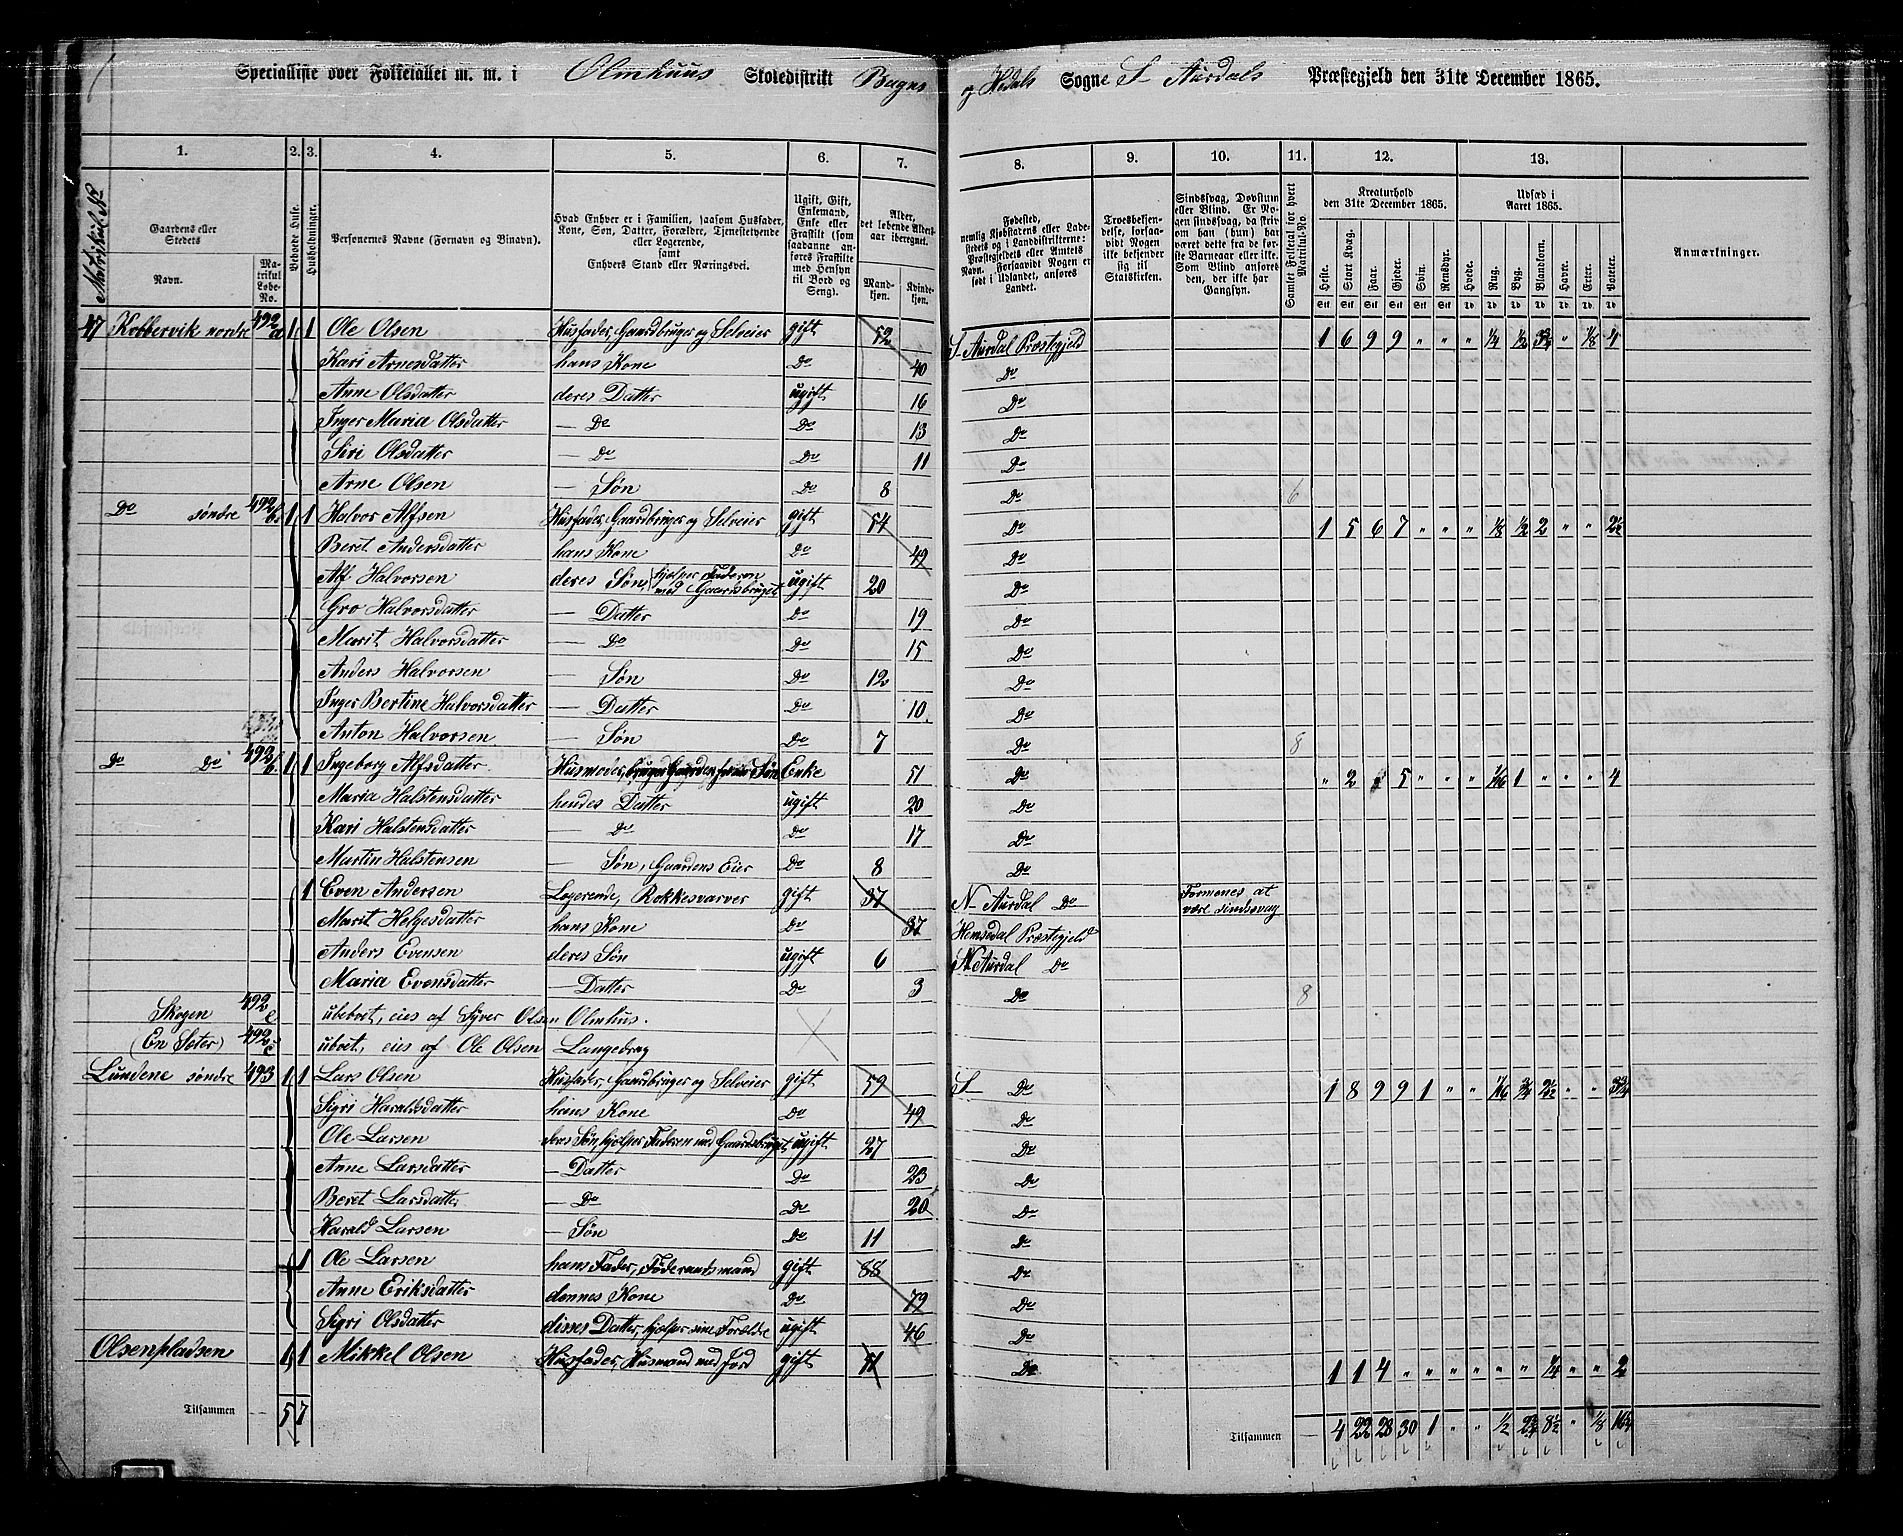 Specialliste over Folketallet m. m. i Olmhuus Skoledistrikt Bagns og Hedals Sogne S. Aurdals Præstegjeld den 31te December 1865.
1. 2. 3. 4. 5. 6. 7. 8. 9. 10. 11. 12. 13.
Matrikul No
Gaardens eller Stedets
Navn.
Matrikul Løbe-No.
Beboede Huse.
Husholdninger.
Personernes Navne (Fornavn og Binavn).
Hvad Enhver er i Familien, saasom Husfader, Kone, Søn, Datter, Forældre, Tjenestetyende eller Logerende, samt Enhvers Stand eller Næringsvei.
Ugift, Gift, Enkemand, Enke eller Fraskilt (som saadanne anføres Fraskilte med Hensyn til Bord og Seng).
Alder, det løbende Aldersaar iberegnet.
Mandkjøn. Kvindekjøn.
Fødested, nemlig Kjøbstadens eller Ladestedets og i Landdistrikterne: Præstegjeldets eller Amtets Navn. Forsaavidt Nogen er født i Udlandet, anføres Landet.
Troesbekjendelse, forsaavidt Nogen ikke bekjender sig til Statskirken.
Sindssvag, Døvstum eller Blind. Er Nogen sindssvag, da skrives om han (hun) har været dette fra de første Barneaar eller ikke. Som Blind ansøres den, der ikke har Gangsyn.
Samlet Folketal for hvert Matrikul-No
Kreaturhold den 31te December 1865.
Heste. Stort Kvæg. Faar. Gjeder. Svin. Rensdyr.
Udsæd i Aaret 1865.
Hvede. Rug. Byg. Blandkorn. Havre. Erter. Poteter.
Anmærkninger.
47 Kobbervik nordre 492a 1 1 Ole Olsen Husfader, Gaardbruger og Selveier gift 52 S. Aurdal Præstegjeld 1 6 9 9 " " " 1/4 1/2 3 3/4 " 1/8 4
Kari Arnesdatter hans Kone Do 40 Do
Anne Olsdatter deres Datter ugift 16 Do
Inger Maria Olsdatter — Do Do 13 Do
Siri Olsdatter — Do Do 11 Do
Arne Olsen — Søn Do 8 Do 6
Do søndre 492b 1 1 Halvor Alfsen Husfader, Gaardbruger og Selveier gift 54 Do 1 5 6 7 " " " 1/8 1/2 2 " " 2 1/2
Beret Andersdatter hans Kone Do 49 Do
Alf Halvorsen deres Søn, hjelper Faderen med Gaardsbruget ugift 20 Do
Gro Halvorsdatter — Datter Do 19 Do
Marit Halvorsdatter — Do Do 15 Do
Anders Halvorsen — Søn Do 12 Do
Inger Bertine Halvorsdatter — Datter Do 10 Do
Anton Halvorsen — Søn Do 7 Do 8
Do Do 492b. 1 1 Ingeborg Alfsdatter Husmoder, bruger Gaarden for sin Søn Enke 51 Do " 2 5 " " " 1/16 1 " " " 4
Maria Halstensdatter hendes Datter ugift 20 Do
Kari Halstensdatter — Do Do 17 Do
Martin Halstensen — Søn, Gaardens Eier Do 8 Do
1 Even Andersen Logerende, Rokkesvarver gift 37 N. Aurdal Do Formenes at være sindssvag
Marit Helgesdatter hans Kone Do 37 Hemsedal Præstegjeld
Anders Evensen deres Søn ugift 6 N. Aurdal Do
Maria Evensdatter — Datter Do 3 Do 8
Skogen 492 ubeboet, eies af Syver Olsen Olmhus.
(En Sæter) 492c uboet, eies af Ole Olsen Langedrag
Lundene søndre 493 1 1 Lars Olsen Husfader, Gaardbruger og Selveier gift 59 S— Do 1 8 9 9 1 " " 1/16 3/4 2 1/2 " " 3 3/4
Sigri Haraldsdatter hans Kone Do 49 Do
Ole Larsen deres Søn hjelper Faderen med Gaardsbruget ugift 27 Do
Anne Larsdatter — Datter Do 23 Do
Beret Larsdatter — Do Do 20 Do
Harald Larsen — Søn Do 11 Do
1 Ole Larsen hans Fader, Føderaadsmand gift 88 Do
Anne Eriksdatter dennes Kone Do 79 Do
Sigri Olsdatter disses Datter, hjelper sine Forældre ugift 46 Do
Olsenpladsen 1 1 Mikkel Olsen Husfader, Husmand med Jord gift 51 Do 1 1 4 " " " " " " 1/4 " " 2
Tilsammen — 5 7 Tilsammen — 4 22 28 30 1 " " 1/2 2 3/4 8 1/2 " 1/8 16 1/4